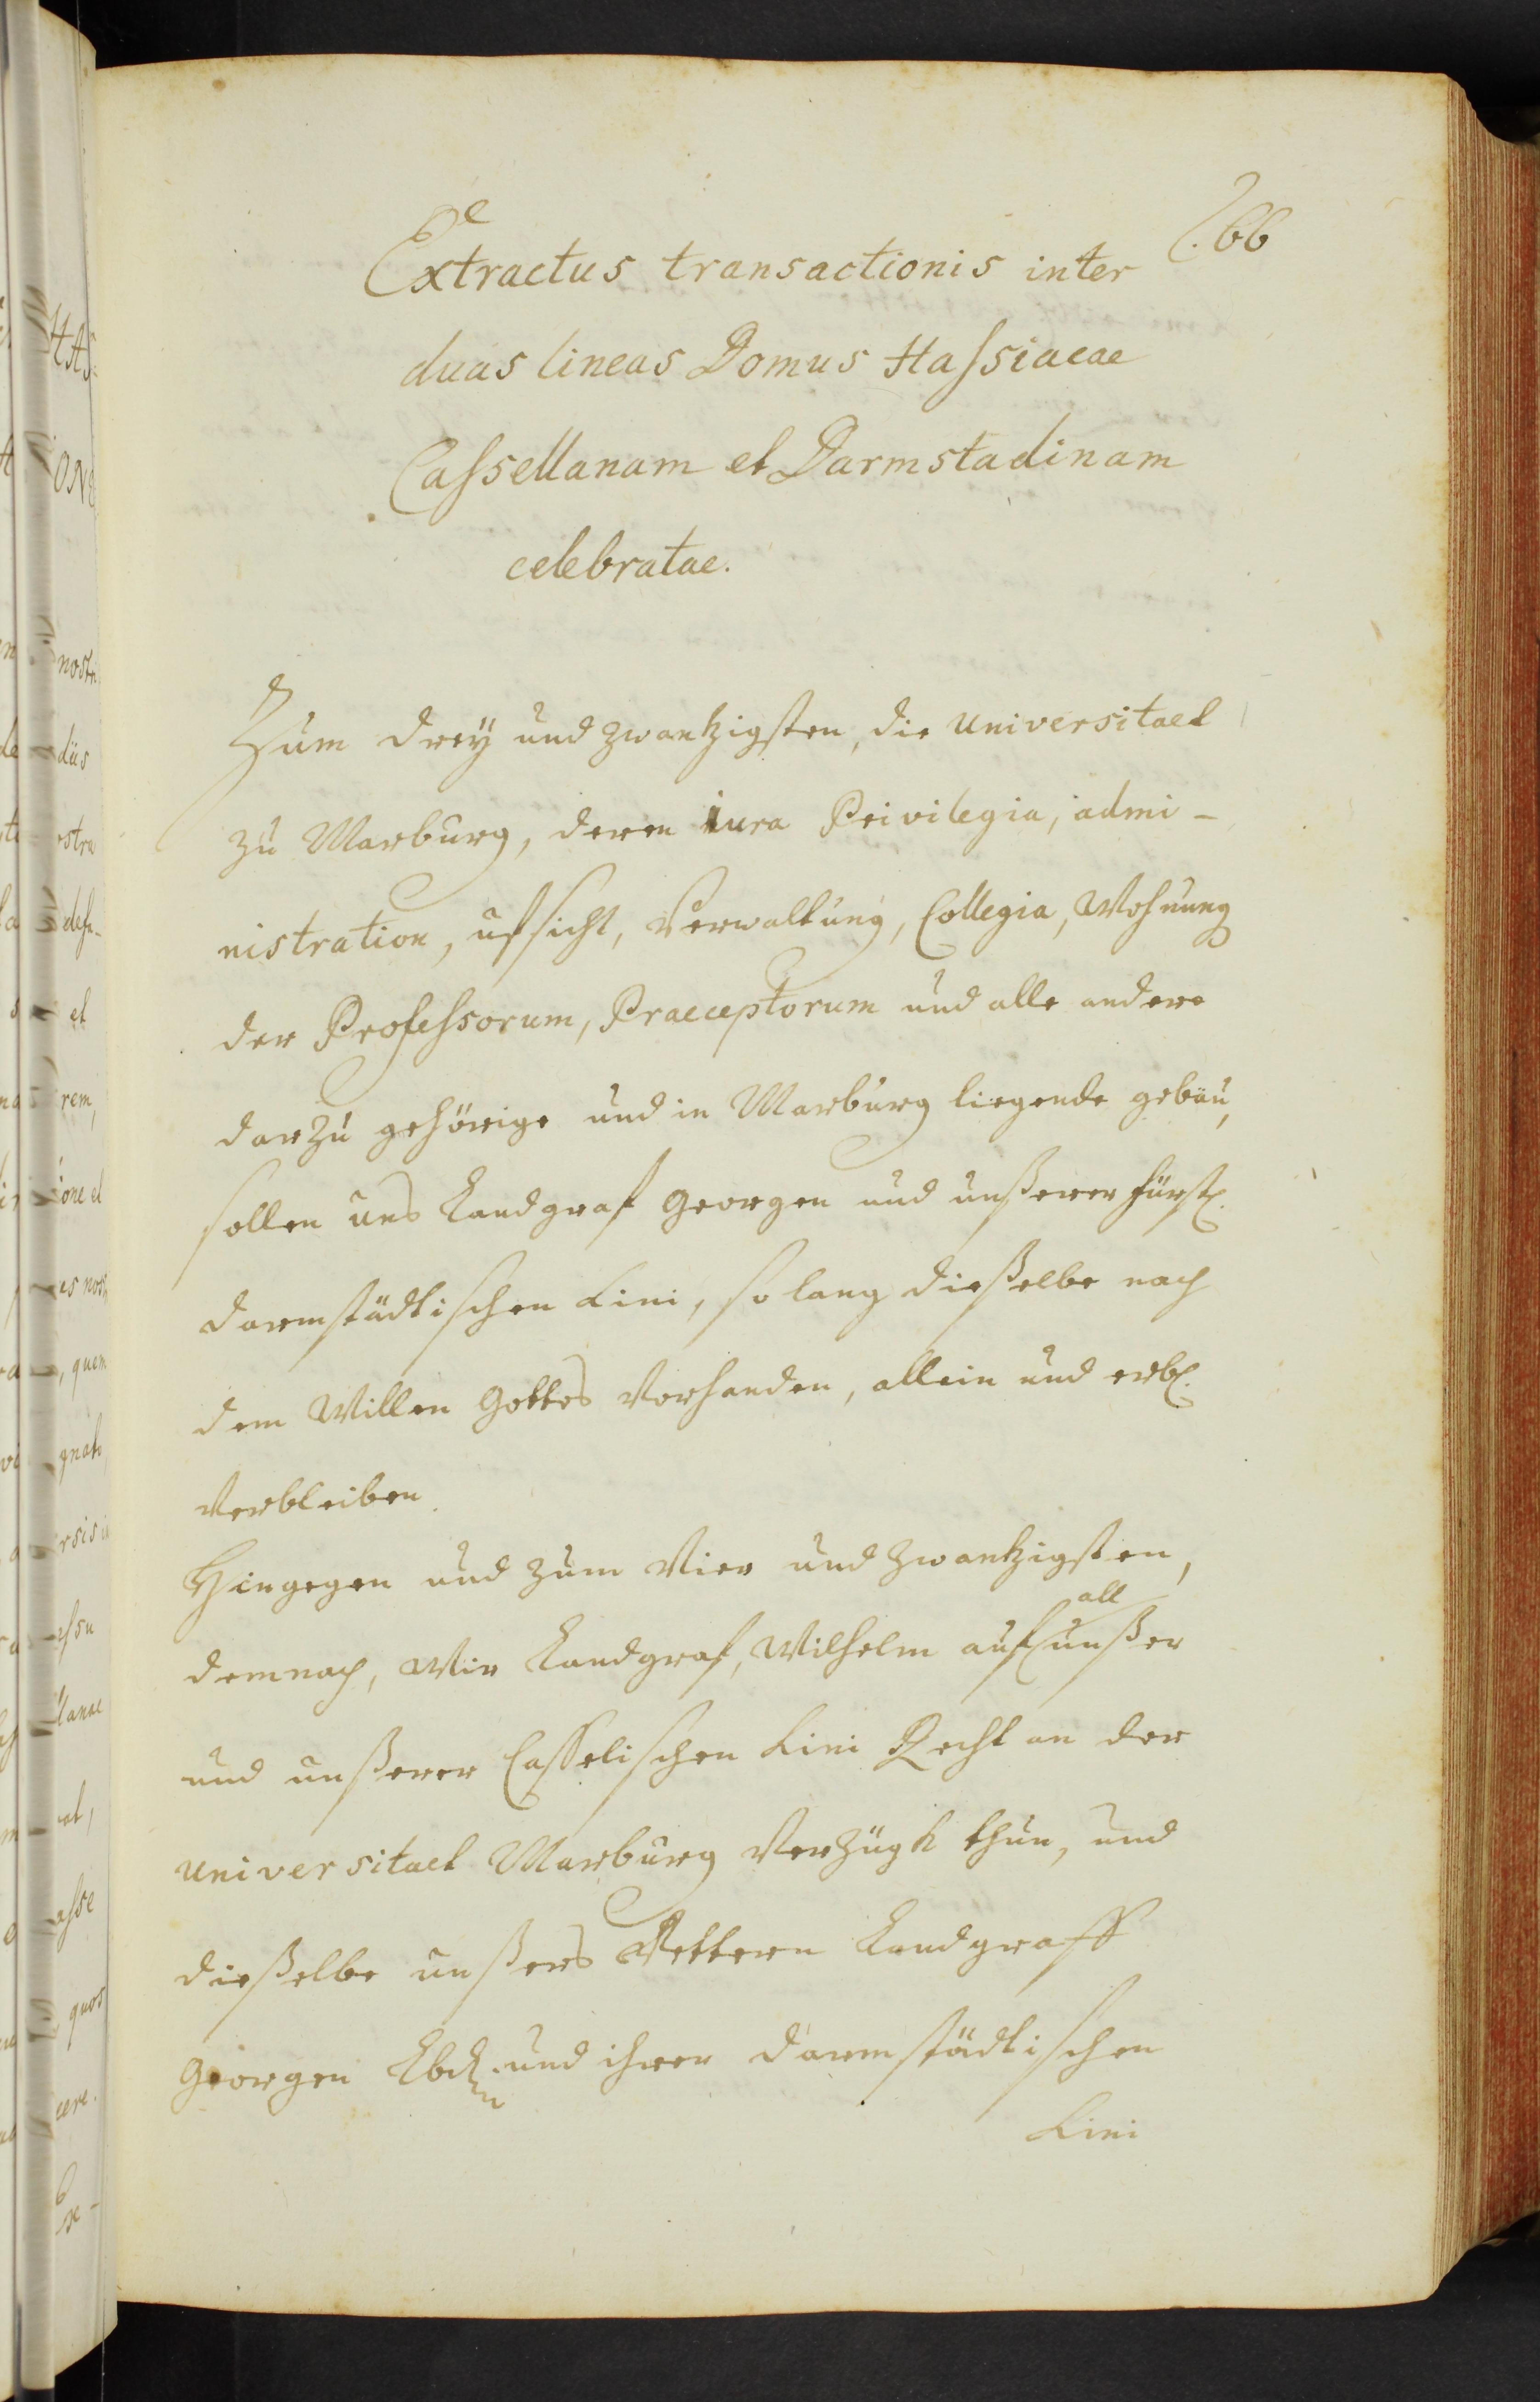 C. 66
Extractus transactionis inter
duas lineas Domus Hassiacae
Cassellanam et Darmstadinam
celebratae.
Zum drey und zwantzigsten, die Universitaet
zu Marburg, deren iura Privilegia, admi-
nistration, ufsicht, Verwaltung, Collegia, Wohnung
der Professorum, Praeceptorum und alle andere
darzu gehörige und in Marburg liegende gebäu,
sollen uns Landgraf Georgen und unßerer fürstl.
darmstädtischen Lini, so lang dießelbe nach
dem Willen Gottes Vorhanden, allein und erbl.
Verbleiben.
Hingegen und zum Vier und zwantzigsten,
all
demnach, Wir Landgraf, Wilhelm auf unßer
und unßerer Casselischen Lini Recht an der
Universitaet Marburg Verzügk thun, und
dießelbe unßers Vettern Landgraff
Georgen Lbd. und ihrer darmstädtischen
Lini